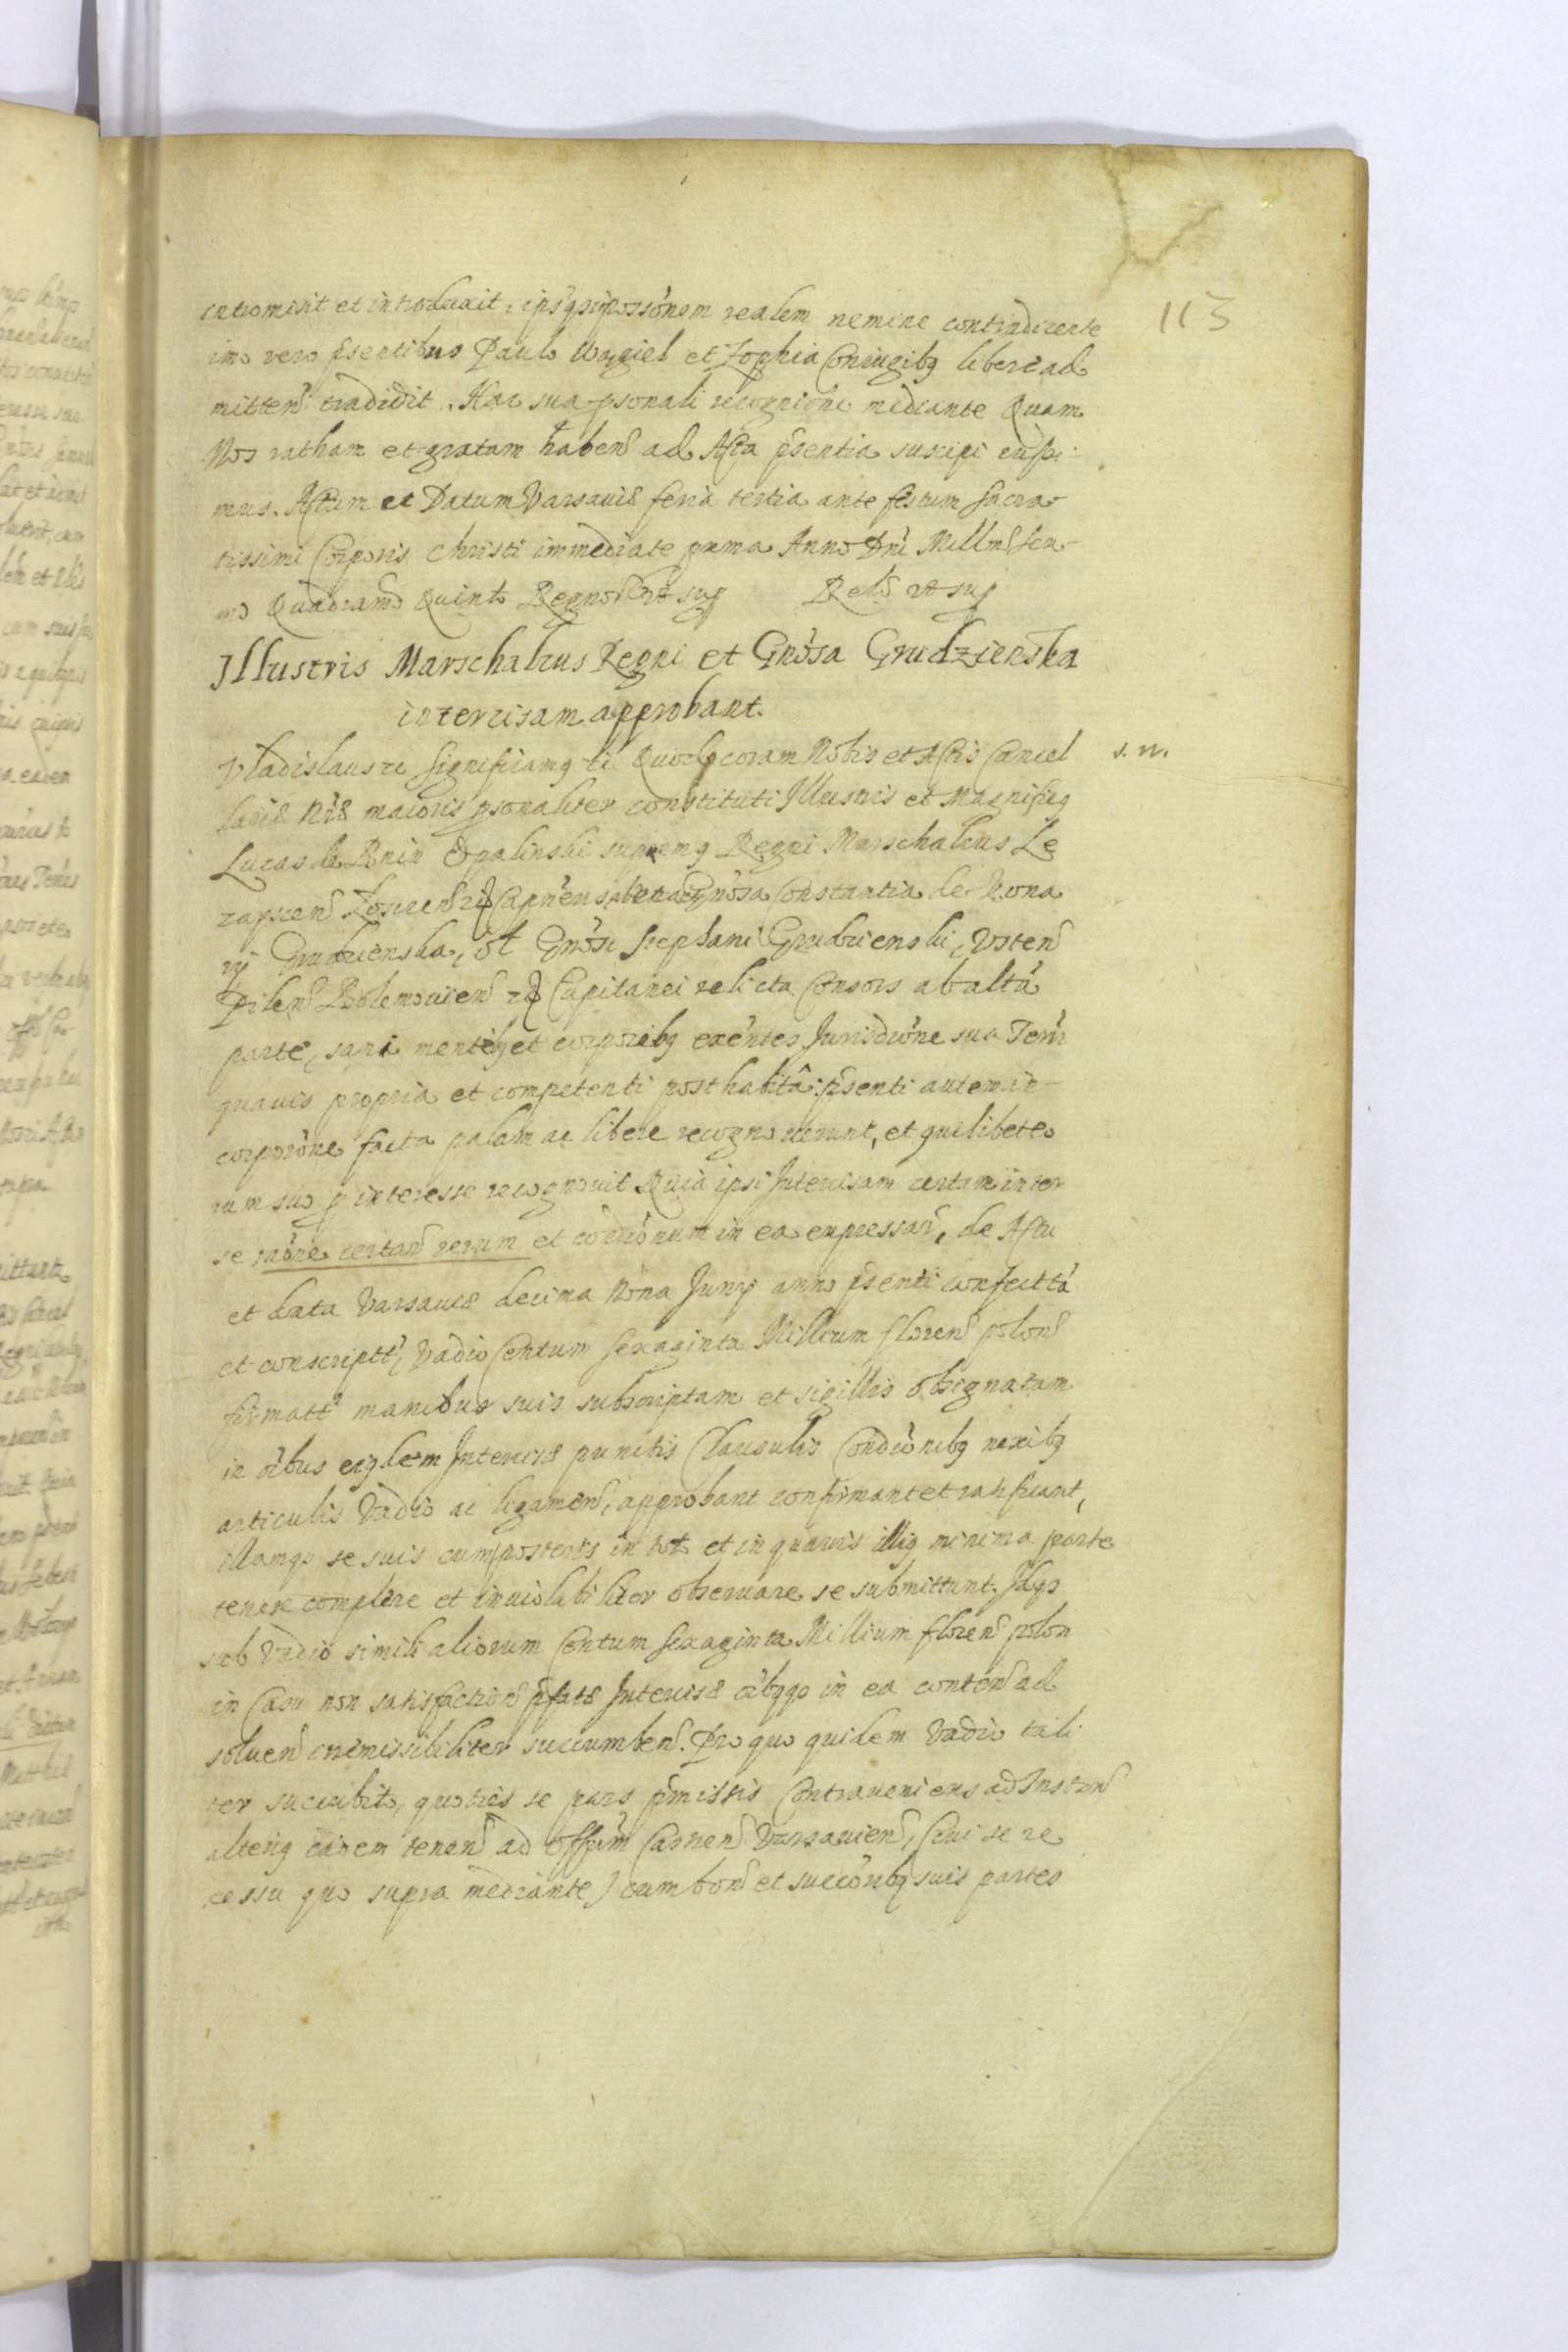 113
intromisit et introduxit, ipsisqz possōnem realem nemine contradicente
imo vero psentibus Paulo Wągiel et Zophia Coniugibq libere ad
mitten tradidit. Hac sua psonali recognitione mediante Quam
Nos ratham et gratam haben ad Acta psentia suscipi iussi-
mus. Actum et Datum Varsaviæ feria tertia ante festum Sacra-
tissimi Corporis Christi immediate prima Anno Dni Millmo Sex-
mo Quadramo Quinto Regnor vt sup Relō vt sup
Illustris Marschalcus Regni et Gnōsa Grudzienska
intercisam approbant.
Vladislaus rc Significamq rc Quorlq coram Nobis et Actis Cancel s. n.
lariæ Nræ maioris psonaliter constituti Illustris et Magnificq
Lucas de Bnin Opalinski supremq Regni Marschalcus Le
zayscen Losicen rc Capneus ab vna et Gnōsa Constantia de Kona
ry Grudzienska, ol Gnōsi Stephani Grudzienski, Vscen
Pilen Bolemovien rc Capitanei relicta Consors ab altā
parte, sani mentibq et corporibq exēntes Jurisdicōne sua Terr
quavis propria et competenti posthabitâ: psenti autem in-
corporōne facta palam ac libere recognoverunt, et quilibet eo
rum suo p interesse recognovit Quia ipsi Intercisam certam inter
se raōne certar rerum et cōndicōnum in ea expressar, de Actu
et data Varsaviæ decima Nona Juny anno psenti confecttā
et conscripttā, Vadio Centum Sexaginta Millium floren polon
firmattā manibus suis subscriptam et sigillis obsignatam
in ōibus eiqdem Intercisæ punctis Clausulis Condicōnibq nexibq
articulis Vadio ac ligamen, approbant confirmant et ratificant,
illamqz se suis cum posteris in toto et in quavis illiq minima parte
tenere complere et inviolabiliter observare se submittunt. Idqz
sub Vadio simili aliorum Centum Sexaginta Millium floren polon
in Casu non satisfactionis pfatæ Intercisæ ōibqqz in ea conten ad
solven irremissibiliter succumben. Pro quo quidem Vadio tali
ter succubito, quoties se pars pmissis Contraveniens ad Instan
alteriq eadem tenen ad Offum Castren Varsavien, (cui se re
cessu quo supra mediante) cum bon et succōribq suis partes